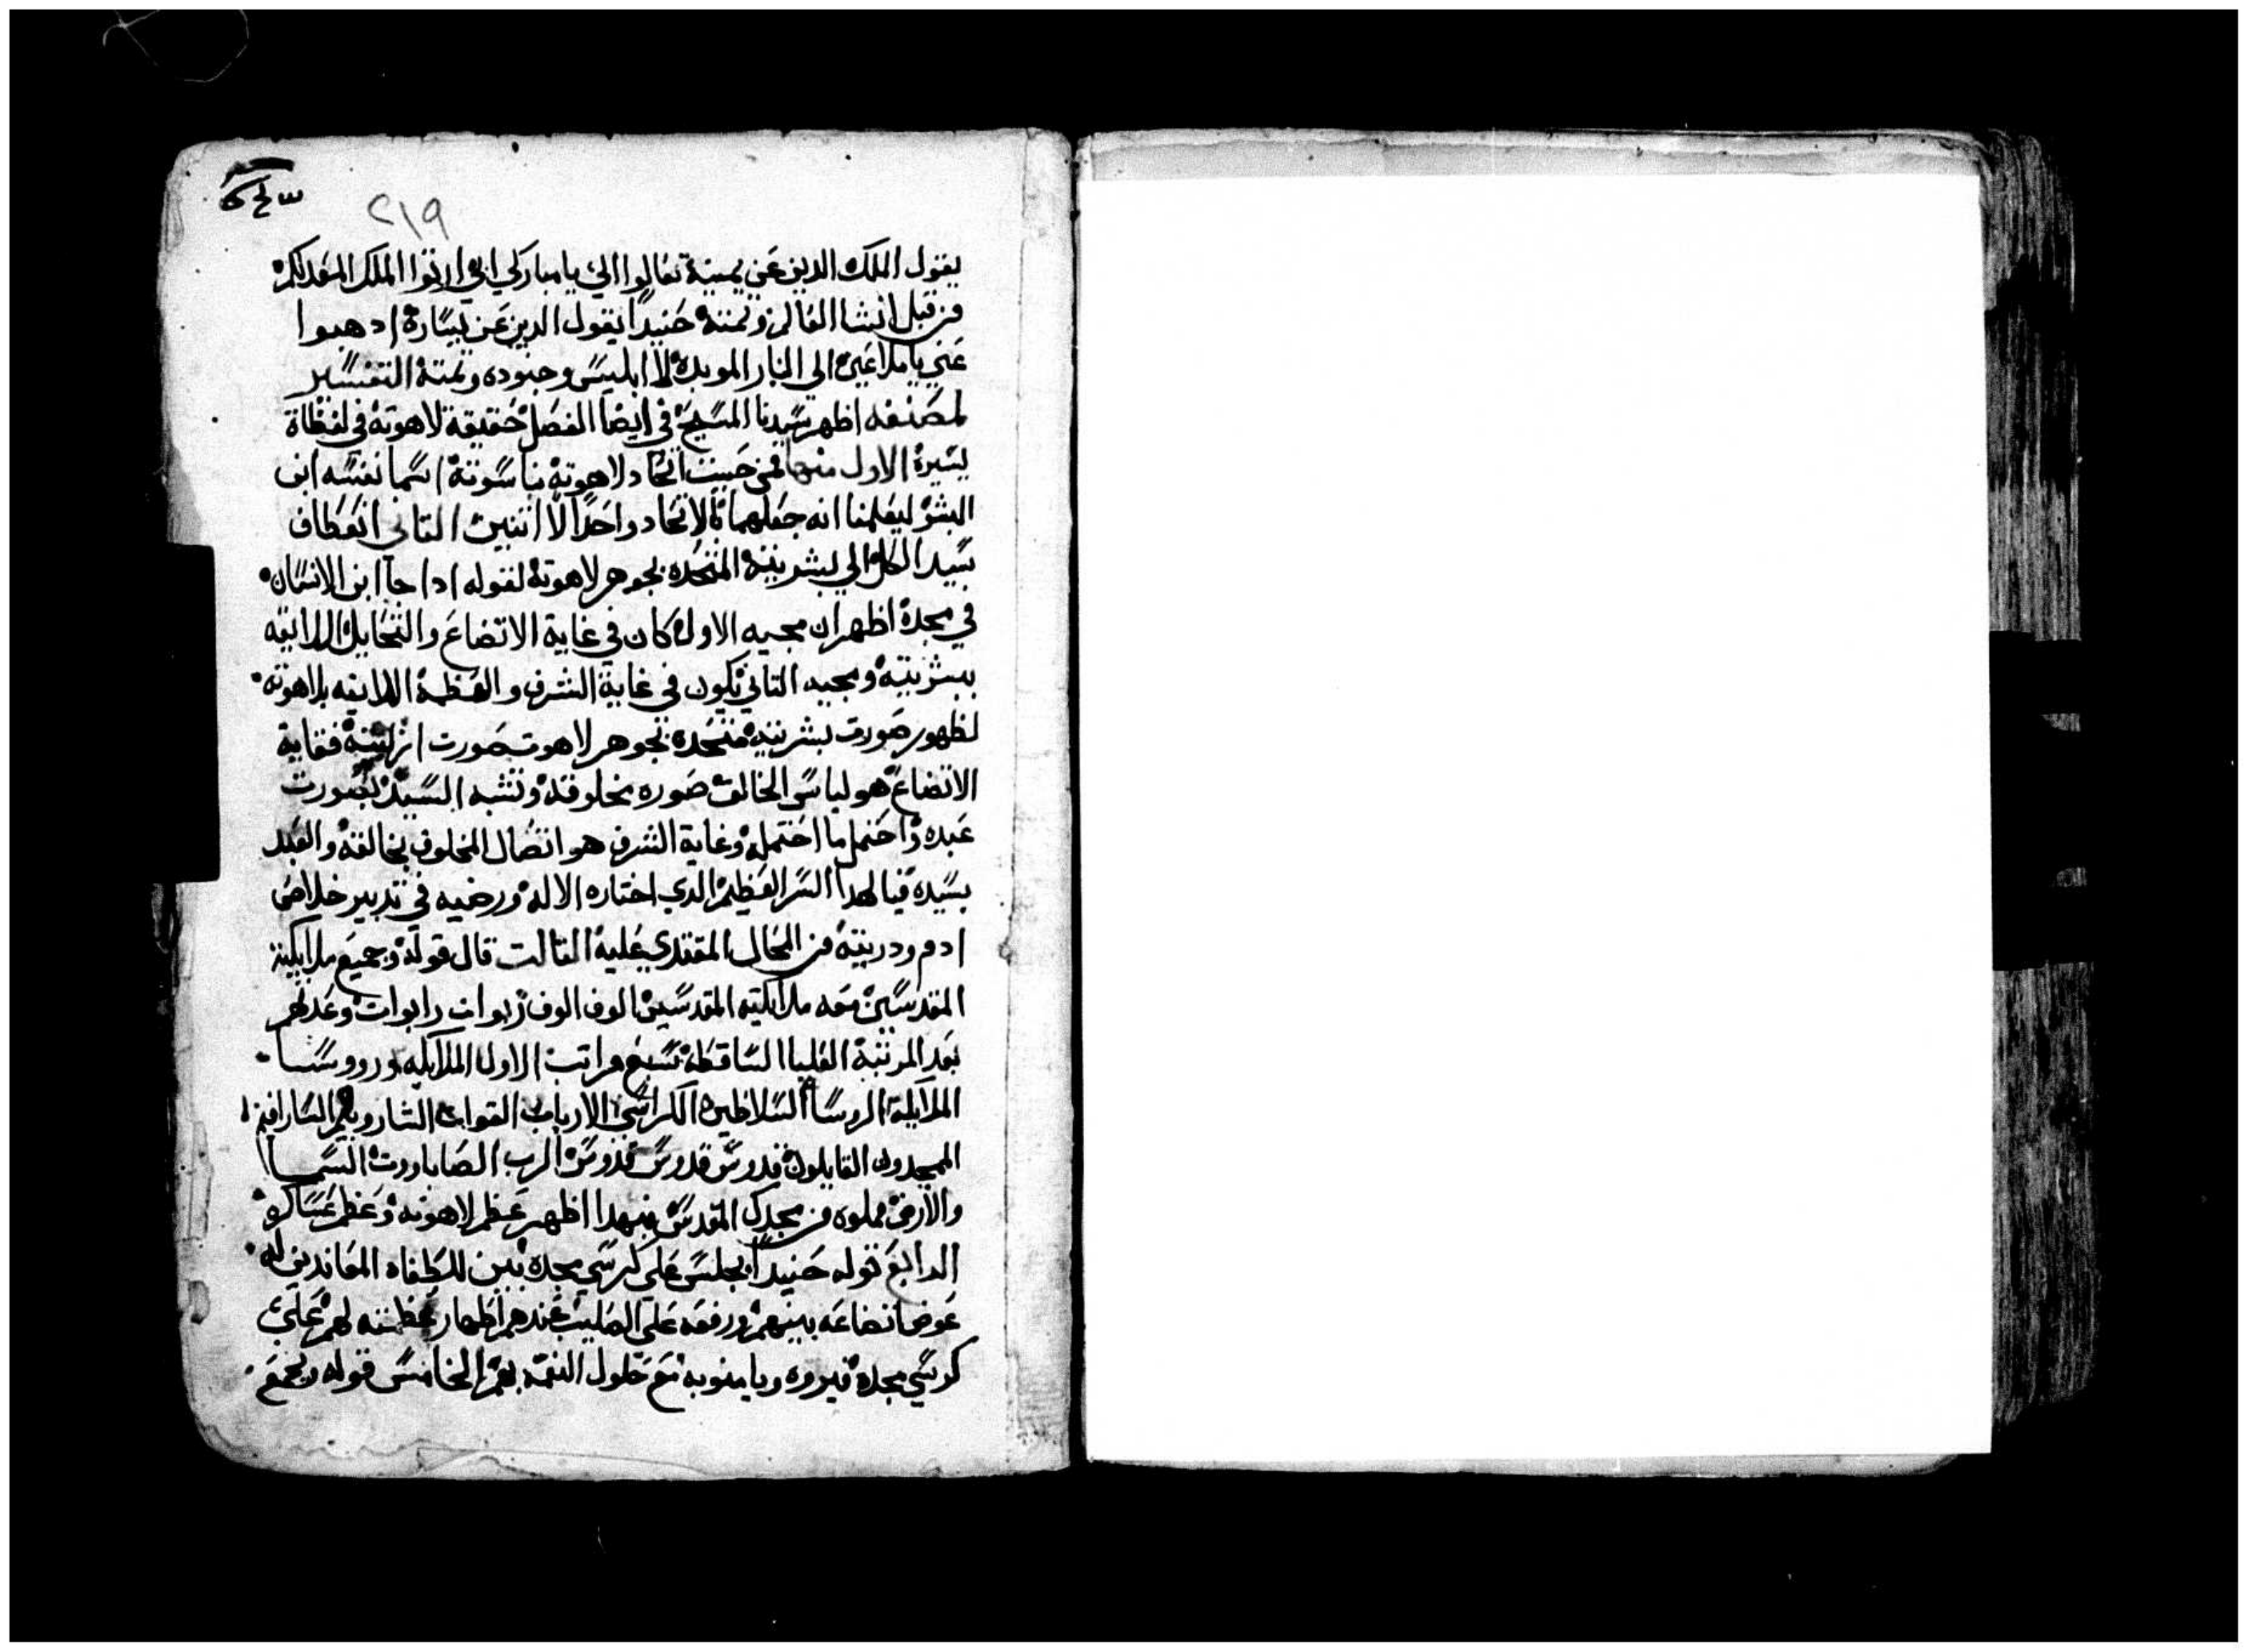 ٢١٩
يقول الملك الدين عن يمينة تعالوا الي يا مباركي ابي ارتوا الملك المعد لكم
من قبل انشا العالم وتمتة حنيدا يقول الدين عن يسارة ادهبوا
عني يا ملاعين الي النار الموبدة لابليس وجنوده وتمتة التفسير
لمصنفه اظهر سيدنا المسيح في ايضا الفصل حقيقة لاهوتة في لفظاة
يسيرة الاول منها فمن حيت اتحاد لاهوتة بناسوتة اسما نفسه ابن
البشر ليعلمنا انه جعلهما بالاتحاد واحدا لا اتنين التاني انعطاف
سيد الكل الي بشريتة المتحده بجوهر لاهوتة لقوله ادا جا ابن الانسان
في مجدة اظهر ان مجيه الاول كان في غاية الاتضاع والتحايل الايقه
ببشريتة ومجيه التاني يكون في غاية الشرف والعظمة الايقه بلاهوته
لظهور صورت بشريتة متحده بجوهر لاهوت صورت ازليتة فغاية
الاتضاع هو لباس الخالق صوره مخلوقة وتشبه السيد بصورت
عبده واحتمل ما احتمل وغاية الشرف هو اتصال المخلوق بخالقة والعبد
بسيده فيا لهدا السر العظيم الدي اختاره الاله ورضيه في تدبير خلاص
ادم ودريتة من المحال المقتدي عليه التالت قال قولة وجميع ملايكتة
المقدسين معه ملايكتيه المقدسين الوف الوف ربوات رابوات وعدلهم
بعد المرتبة العليا الساقطة تسع مراتب الاول الملايكه وروسا
الملايكة الروسا السلاطين الكراسي الارباب القوات الشاروبيم السارافيم
الممجدون القايلون قدوس قدوس قدوس الرب الصاباووت السما
والارض مملوه من مجدك المقدس فبهدا اظهر عظم لاهوته وعظم عساكرة
الرابع قوله حنيدا يجلس علي كرسي مجدة بين للطغاة المعاندين له
عوض اتضاعه بينهم ورفعه علي الصليب عندهم اظهار عظمته لهم علي
كرسي مجدة فيروه ويامنو به مع حلول النقمة بهم الخامس قوله ويجمع